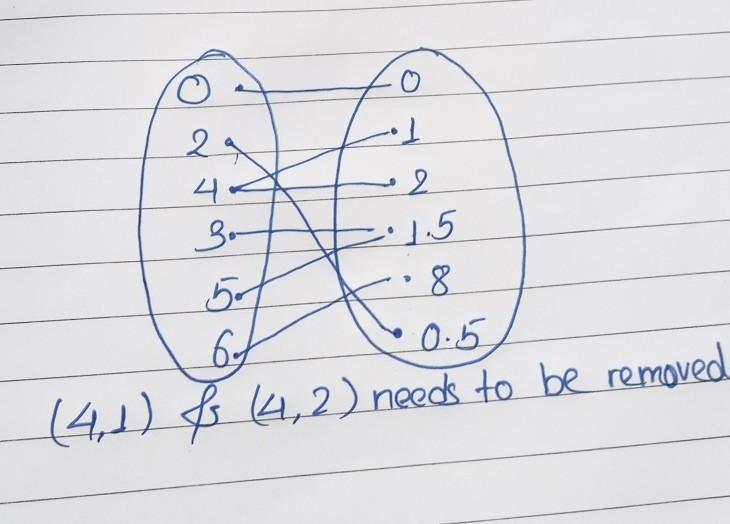 0 0
2 1
4 2
3 1.5
5 8
6 0.5
(4,1) & (4,2) needs to be removed